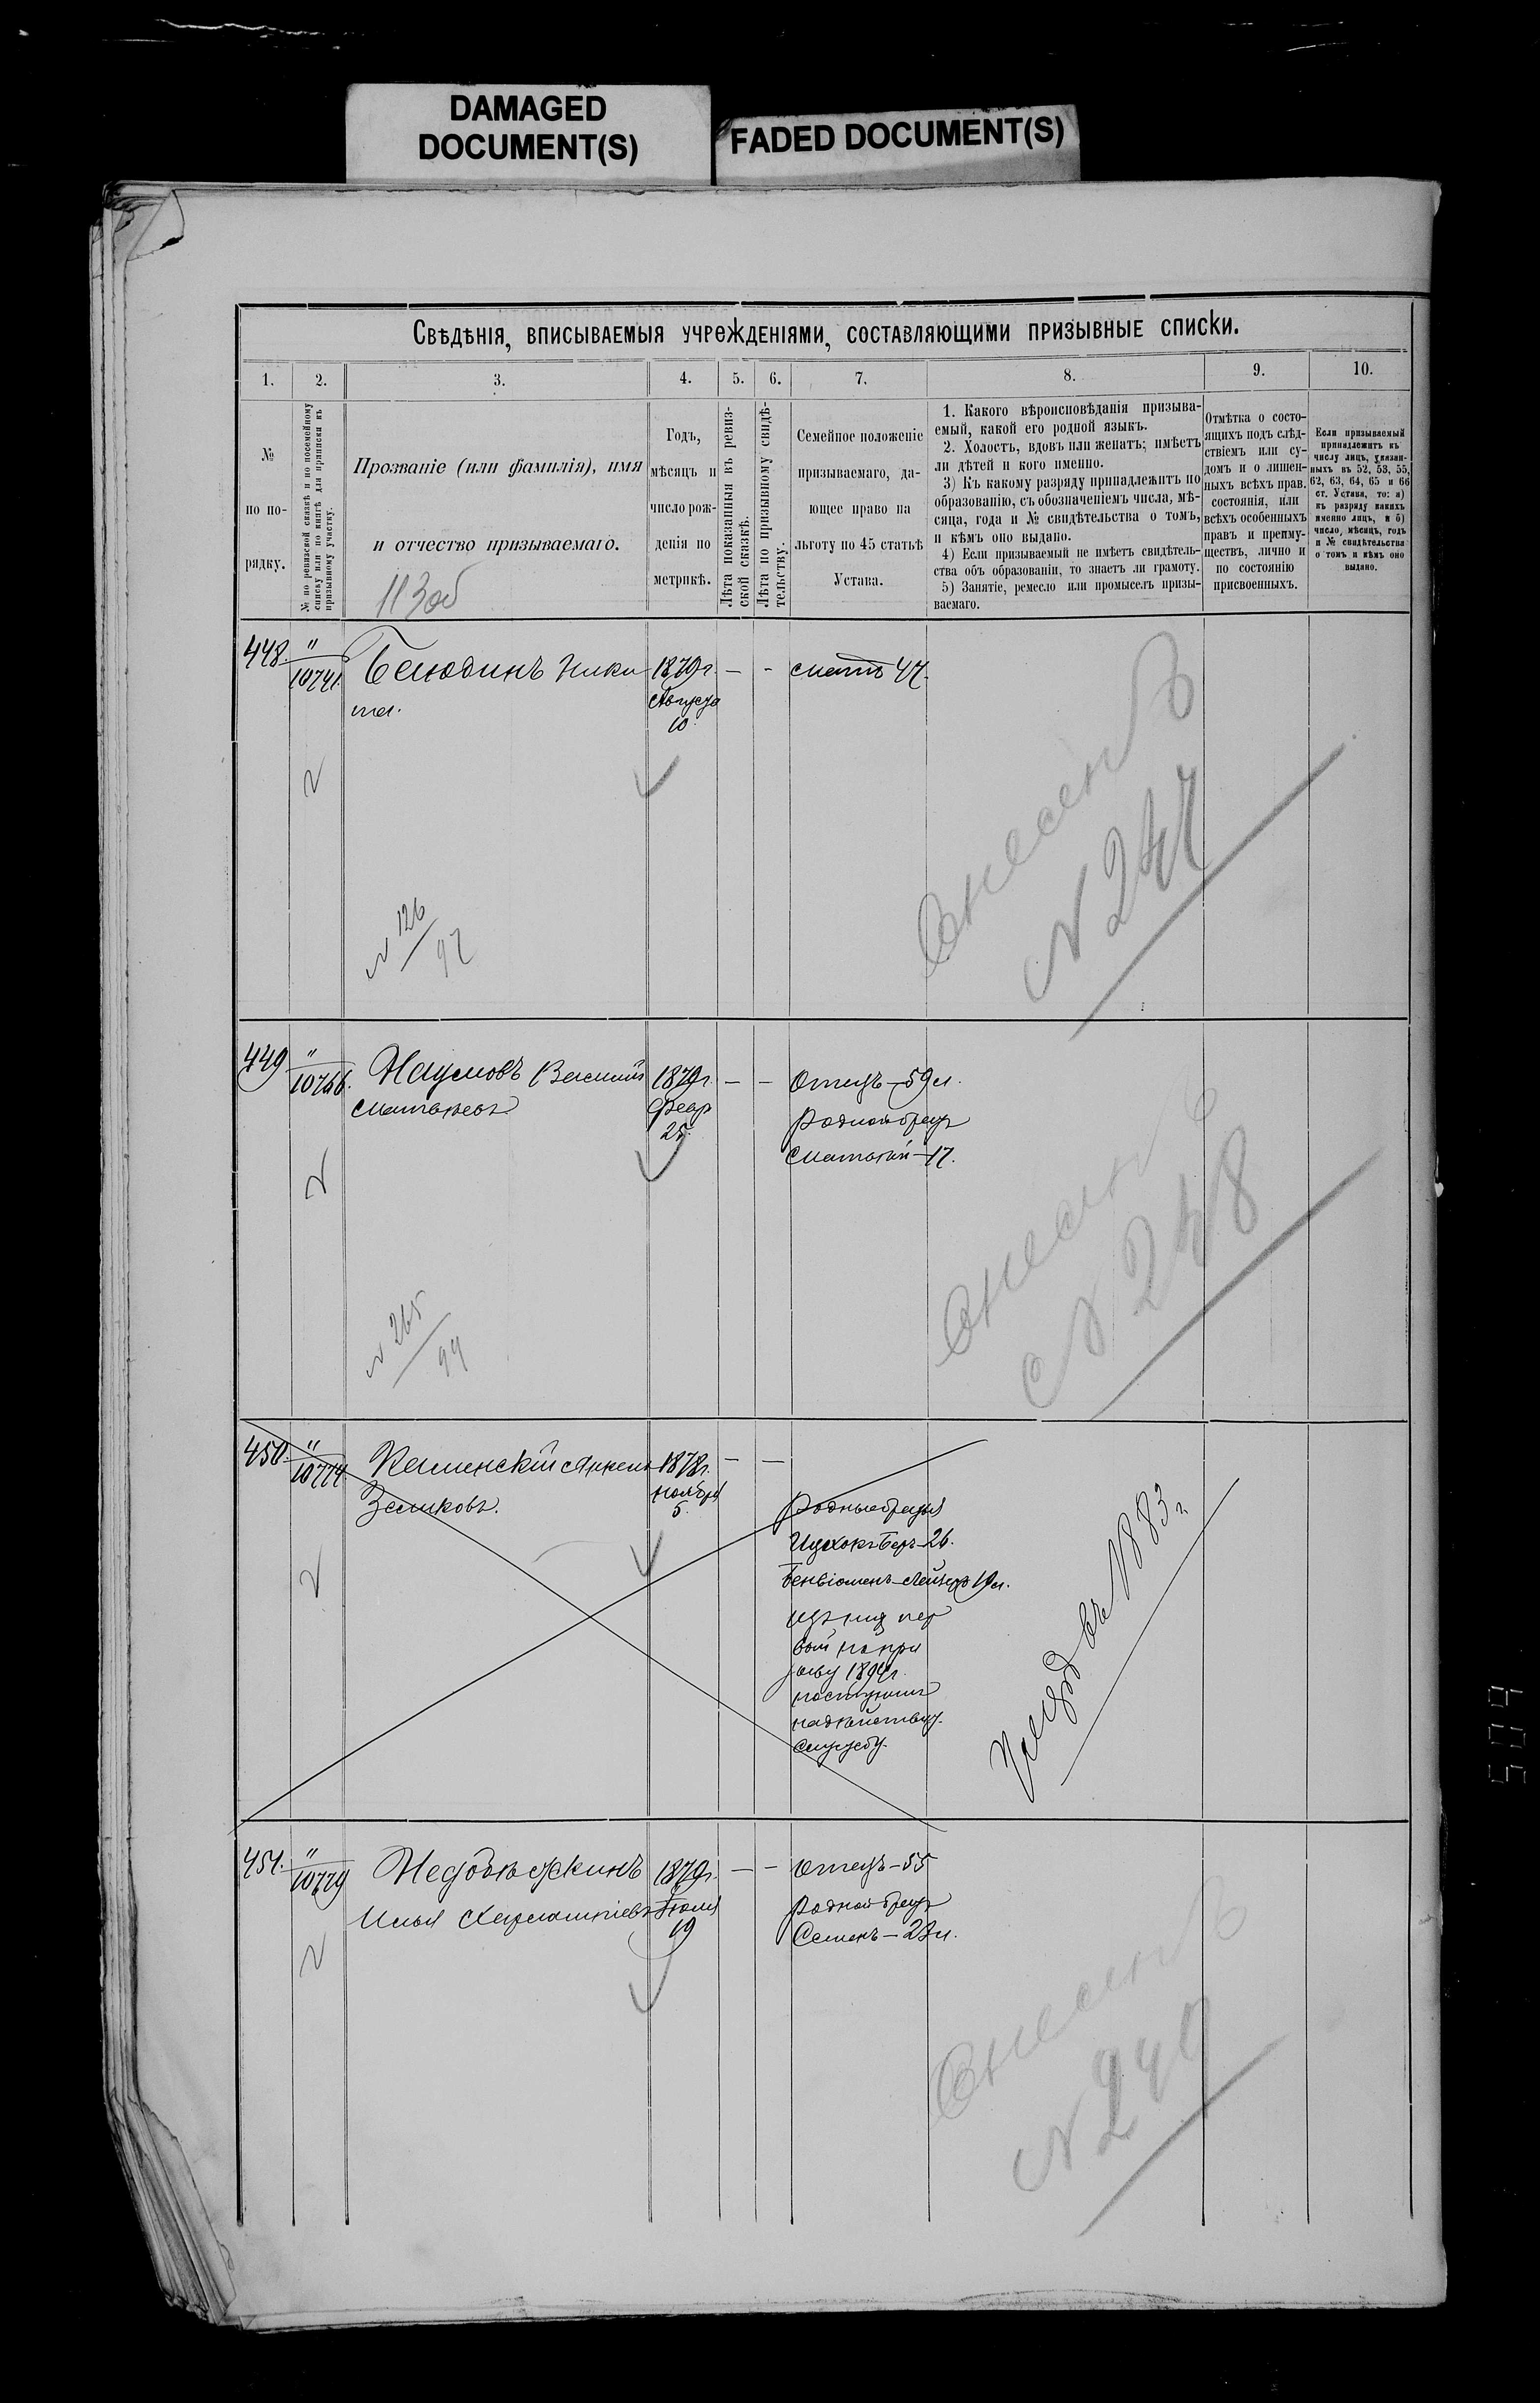 DAMAGED
DOCUMENT(S)
FADED DOCUMENT(S)
Свѣдѣнія, вписываемыя учрежденіями, составляющими призывные списки.
1. 2. 3. 4. 5. 6. 7. 8. 9. 10.
№
по по-
рядку.
№ по ревизской сказкѣ и по посемейному
списку или по книгѣ для приписки къ
призывному участку.
Прозваніе (или фамилія), имя
и отчество призываемаго.
Годъ,
мѣсяцъ и
число рож-
денія по
метрикѣ.
Лѣта показанныя въ ревиз-
ской сказкѣ.
Лѣта по призывному свидѣ-
тельству.
Семейное положеніе
призываемаго, да-
ющее право на
льготу по 45 статьѣ
Устава.
1. Какого вѣроисповѣданія призыва-
емый, какой его родной языкъ.
2. Холостъ, вдовъ или женатъ; имѣетъ
ли дѣтей и кого именно.
3) Къ какому разряду принадлежитъ по
образованію, съ обозначеніемъ числа, мѣ-
сяца, года и № свидѣтельства о томъ,
и кѣмъ оно выдано.
4) Если призываемый не имѣетъ свидѣтель-
ства объ образованіи, то знаетъ ли грамоту.
5) Занятіе, ремесло или промыселъ призы-
ваемаго.
Отмѣтка о состо-
ящихъ подъ слѣд-
ствіемъ или су-
домъ и о лишен-
ныхъ всѣхъ прав.
состоянія, или
всѣхъ особенныхъ
правъ и преиму-
ществъ, лично и
по состоянію
присвоенныхъ.
Если призываемый
принадлежитъ къ
числу лицъ, указан-
ныхъ въ 52, 53, 55,
62, 63, 64, 65 и 66
ст. Устава, то: а)
къ разряду какихъ
именно лицъ, и б)
число, мѣсяцъ, годъ
и № свидѣтельства
о томъ и кѣмъ оно
выдано.
448 " 10741. Ники 1879г. — - мать 47.
та. Августа
10.
2
Внесенъ
№ 247
№ 126
97
449 " 10766. Наумовъ Василій 1879г. — — Отецъ—59л.
Матвѣевъ Февр Родной братъ
25. Матвѣй—17.
2
Внесенъ
№ 248
№ 265
99
450. " 10774 Каминскій Янкель 1878г. — —
Зеликовъ. Ноября Родные братья
5. Ицхокъ Беръ—26.
Беніоменъ—Лейзеръ 19л.
изъ них пер
вый по при
зыву 1894г.
поступилъ
на дѣйству.
службу.
2
въ 1883г
451. " 10779 1879г. — — Отецъ—55
Илья Харлампіевъ Іюля Родной братъ
19 Семенъ—23л.
2
Внесенъ
№ 249
504